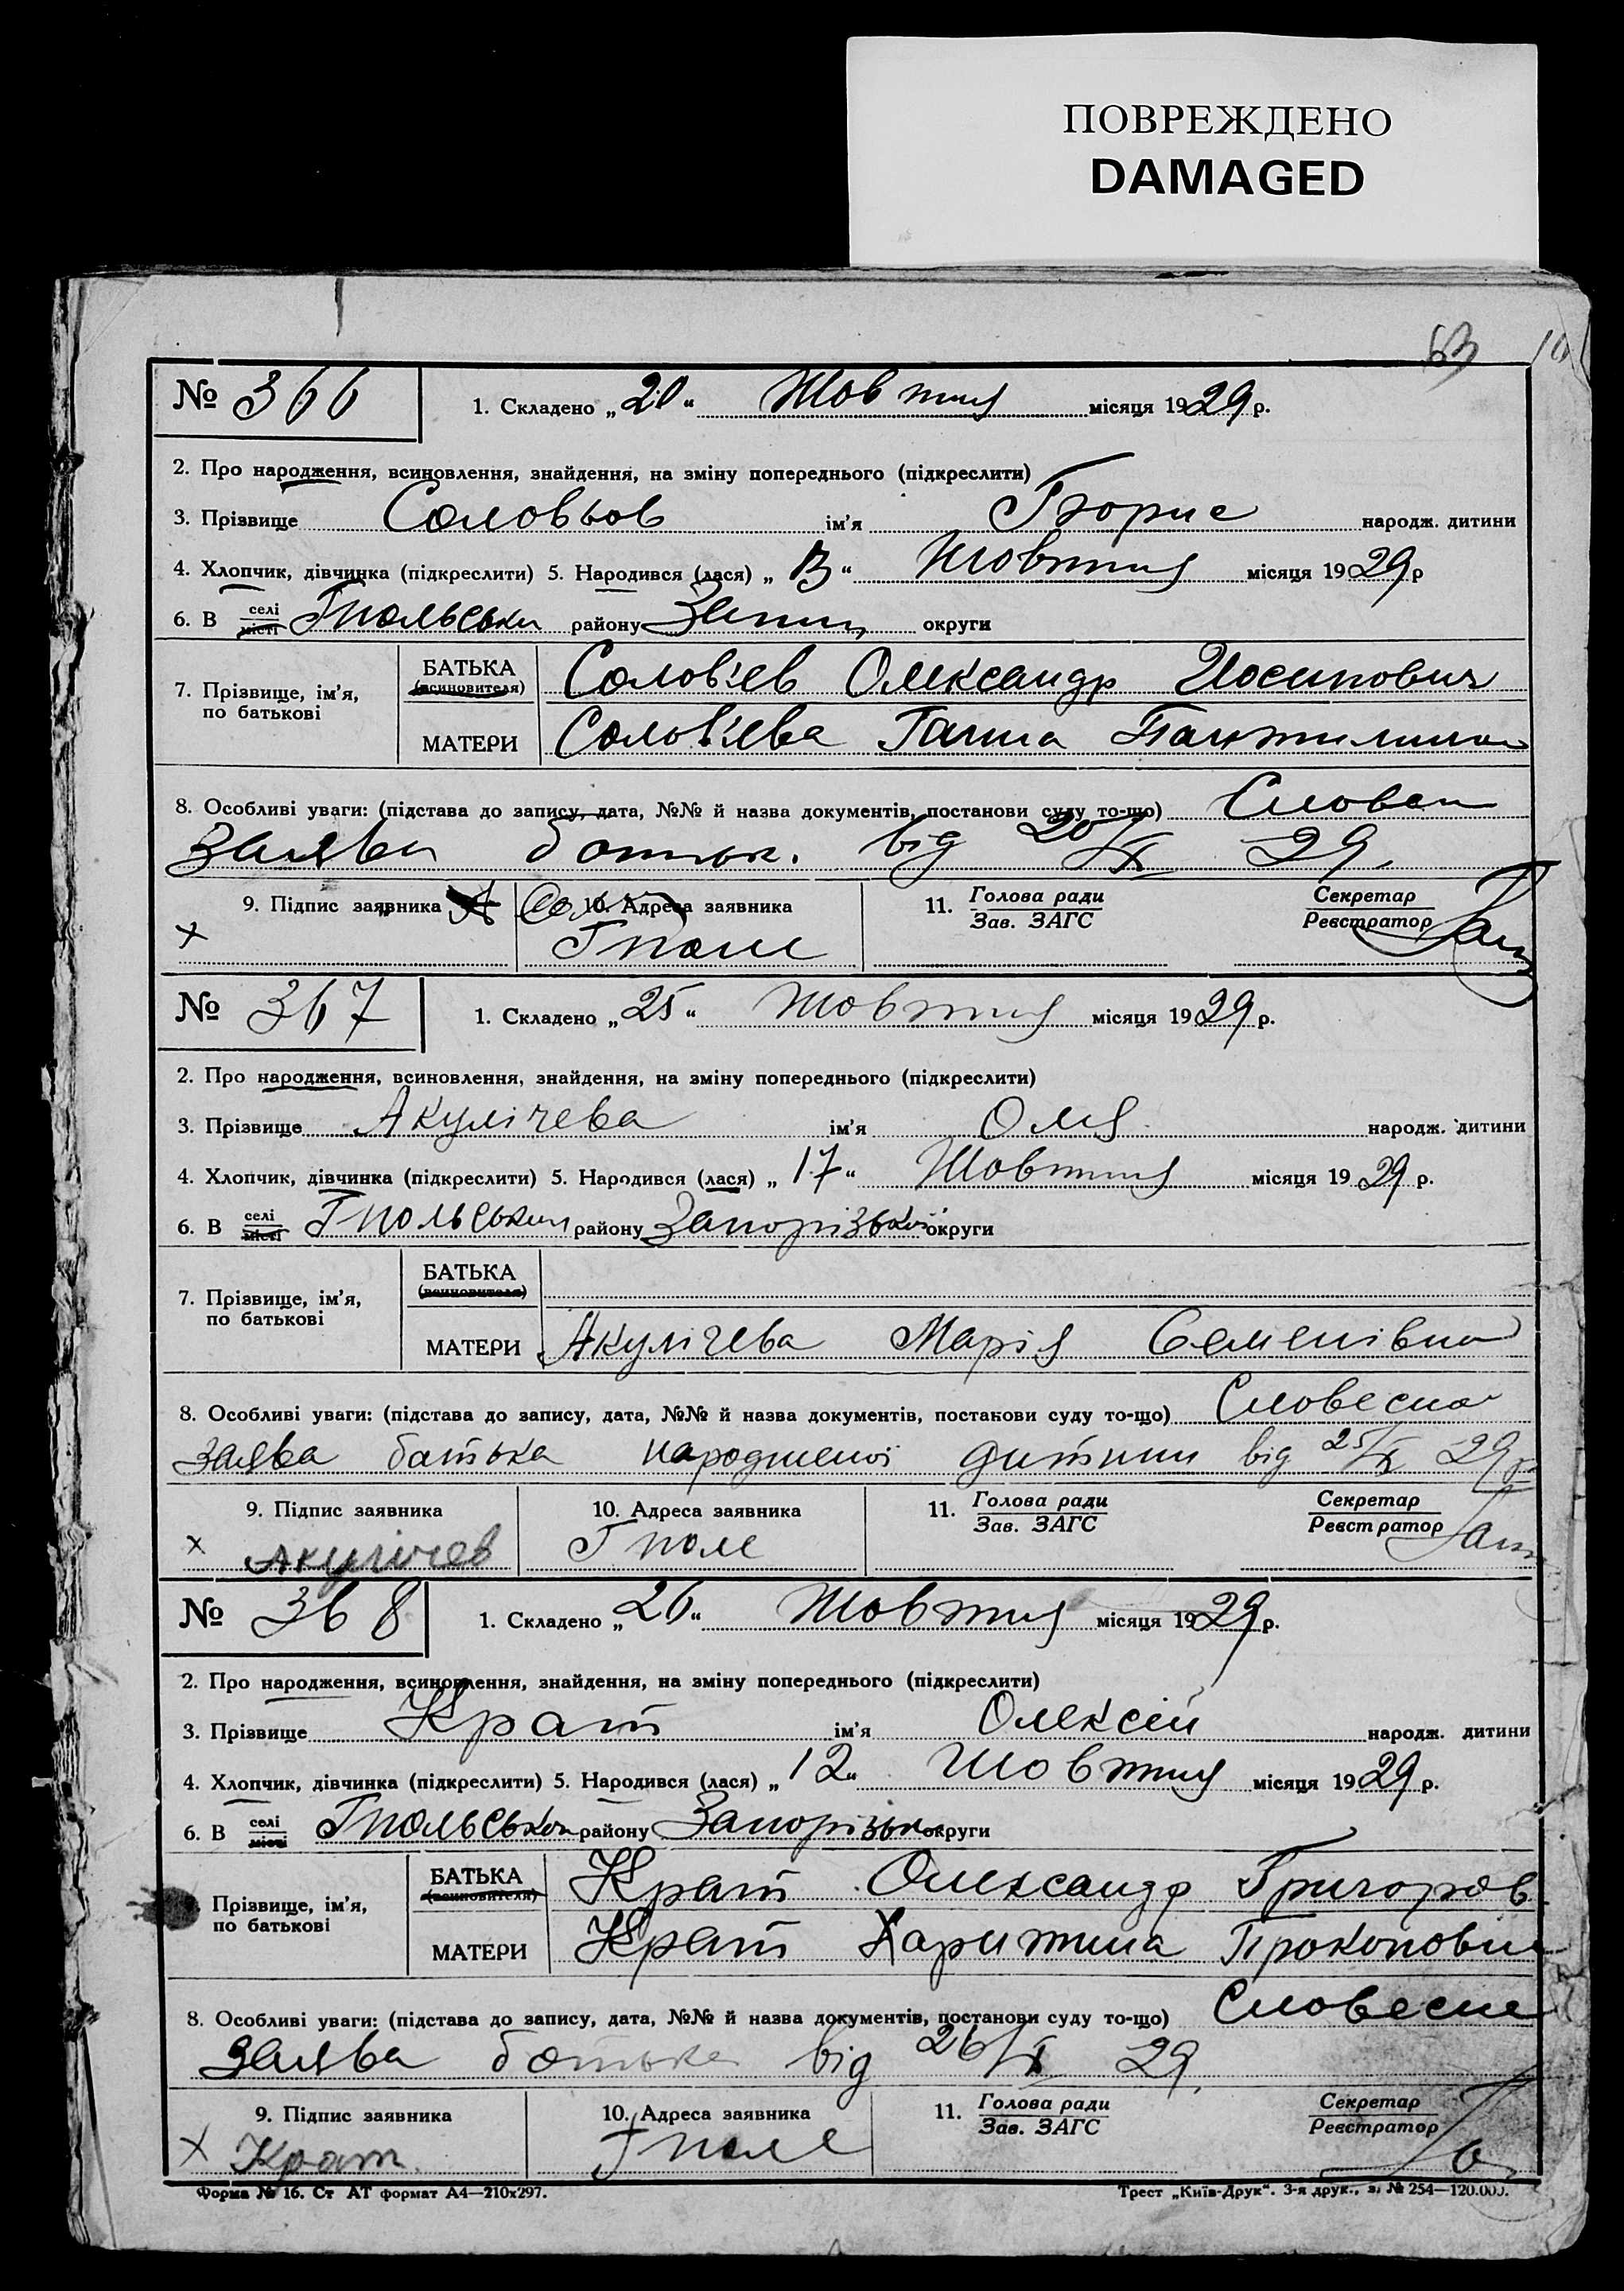 ПОВРЕЖДЕНО
DAMAGED
63
№ 366 1. Складено „20“ Жовтня місяця 1929 р.
2. Про народження, всиновлення, знайдення, на зміну попереднього (підкреслити)
3. Прізвище Соловьов ім'я Борис народж. дитини
4. Хлопчик, дівчинка (підкреслити) 5. Народився (лася) „13“ Жовтня місяця 1929 р
6. В селі місті Гпольськ району Запо округи
7. Прізвище, ім'я, по батькові
БАТЬКА (всиновителя) Солов'єв Олександр Йосипович
МАТЕРИ Солов'єва Ганна
8. Особливі уваги: (підстава до запису, дата, №№ й назва документів, постанови суду то-що) Словесн
Заява батьк. від 20/X 29.
9. Підпис заявника 10. Адреса заявника 11. Голова ради Секретар
Зав. ЗАГС Реєстратор
х Гполе
№ 367 1. Складено „25“ Жовтня місяця 1929 р.
2. Про народження, всиновлення, знайдення, на зміну попереднього (підкреслити)
3. Прізвище Акулічева ім'я Оля народж. дитини
4. Хлопчик, дівчинка (підкреслити) 5. Народився (лася) „17“ Жовтня місяця 1929 р.
6. В селі місті Гпольськ району Запорізької округи
7. Прізвище, ім'я, по батькові
БАТЬКА (всиновителя)
МАТЕРИ Акулічева Марія Семенівна
8. Особливі уваги: (підстава до запису, дата, №№ й назва документів, постанови суду то-що) Словесна
заява батька народженої дитини від 25/X 29 р
9. Підпис заявника 10. Адреса заявника 11. Голова ради Секретар
Зав. ЗАГС Реєстратор
х Акулічев Гполе
№ 368 1. Складено „26“ Жовтня місяця 1929 р.
2. Про народження, всиновлення, знайдення, на зміну попереднього (підкреслити)
3. Прізвище Крат ім'я Олексій народж. дитини
4. Хлопчик, дівчинка (підкреслити) 5. Народився (лася) „12“ Жовтня місяця 1929 р.
6. В селі місті Гпольськ району Запорізьк округи
Прізвище, ім'я, по батькові
БАТЬКА (всиновителя) Крат Олександр Григоров
МАТЕРИ Крат Харитина Прокоповн
8. Особливі уваги: (підстава до запису, дата, №№ й назва документів, постанови суду то-що) Словесна
заява батька від 26/X 29.
9. Підпис заявника 10. Адреса заявника 11. Голова ради Секретар
Зав. ЗАГС Реєстратор
х Крат Гполе
Форма № 16. Ст АТ формат А4—210х297. Трест „Київ-Друк“. 3-я друк., з. № 254—120.000.